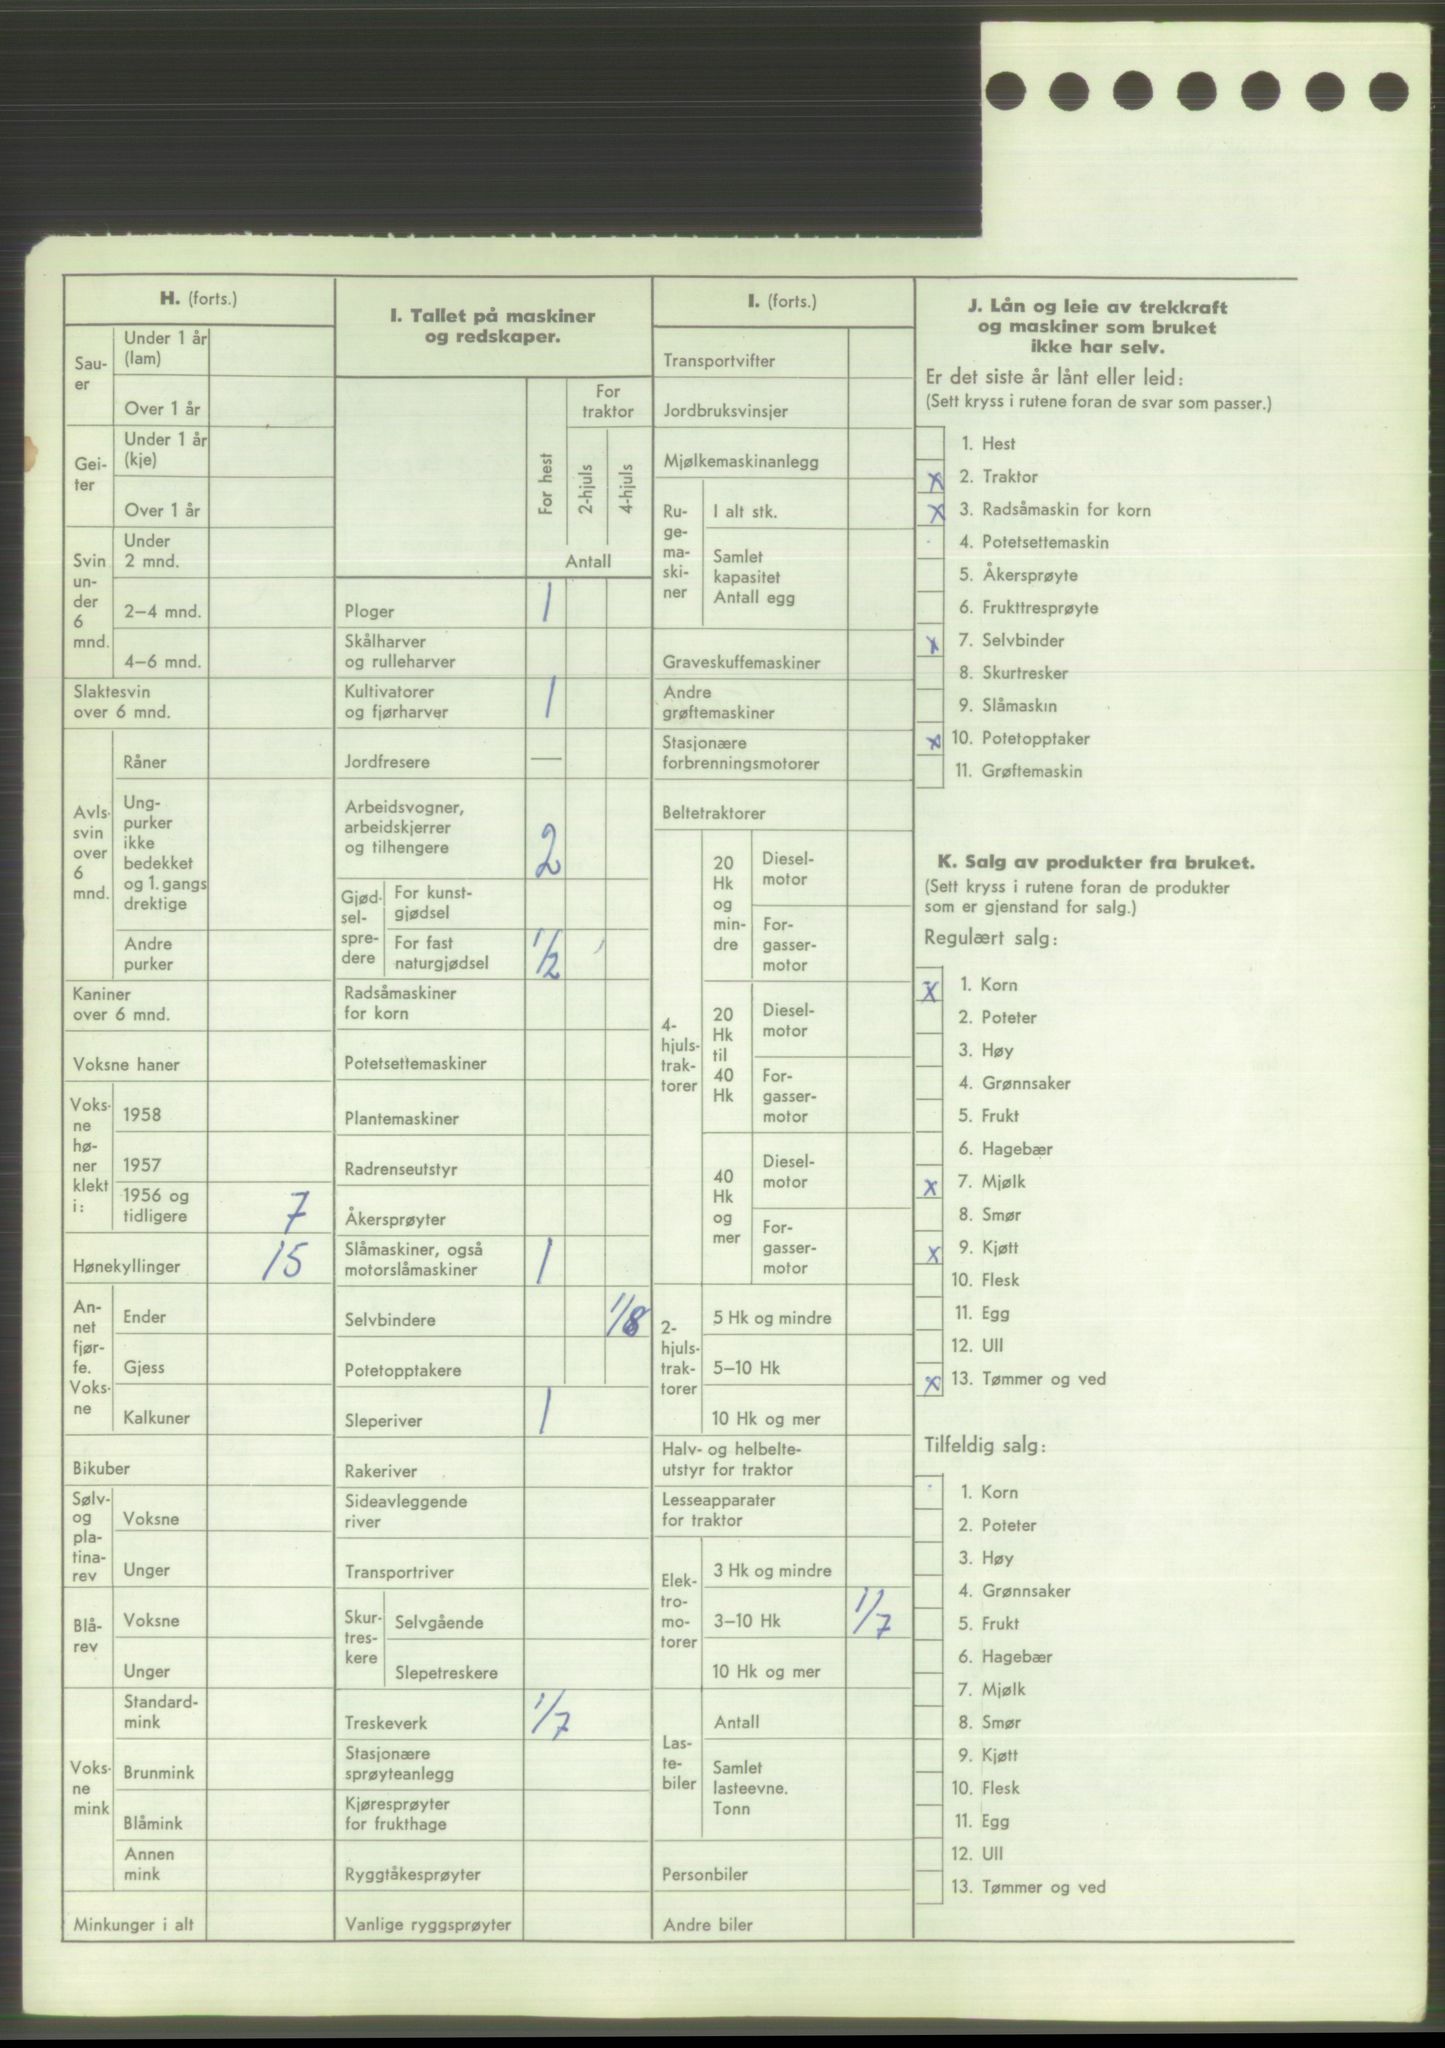 H. (forts.)
Sau-
er
Under 1 år
(lam)
Over 1 år
Gei-
ter
Under 1 år
(kje)
Over 1 år
Svin
un-
der
6
mnd.
Under
2 mnd.
2–4 mnd.
4–6 mnd.
Slaktesvin
over 6 mnd.
Avls-
svin
over
6
mnd.
Råner
Ung-
purker
ikke
bedekket
og 1. gangs
drektige
Andre
purker
Kaniner
over 6 mnd.
Voksne haner
Voks-
ne
hø-
ner
klekt
i:
1958
1957
1956 og
tidligere 7
Hønekyllinger 15
An-
net
fjør-
fe.
Voks-
ne
Ender
Gjess
Kalkuner
Bikuber
Sølv-
og
pla-
tina-
rev
Voksne
Unger
Blå-
rev
Voksne
Unger
Voks-
ne
mink
Standard-
mink
Brunmink
Blåmink
Annen
mink
Minkunger i alt
I. Tallet på maskiner
og redskaper.
For hest
For
traktor
2-hjuls
4-hjuls
Antall
Ploger 1
Skålharver
og rulleharver
Kultivatorer
og fjørharver 1
Jordfresere —
Arbeidsvogner,
arbeidskjerrer
og tilhengere 2
Gjød-
sel-
spre-
dere
For kunst-
gjødsel
For fast
naturgjødsel 1/2
Radsåmaskiner
for korn
Potetsettemaskiner
Plantemaskiner
Radrenseutstyr
Åkersprøyter
Slåmaskiner, også
motorslåmaskiner 1
Selvbindere 1/8
Potetopptakere
Sleperiver 1
Rakeriver
Sideavleggende
river
Transportriver
Skur-
tres-
kere
Selvgående
Slepetreskere
Treskeverk 1/7
Stasjonære
sprøyteanlegg
Kjøresprøyter
for frukthage
Ryggtåkesprøyter
Vanlige ryggsprøyter
I. (forts.)
Transportvifter
Jordbruksvinsjer
Mjølkemaskinanlegg
Ru-
ge-
ma-
ski-
ner
I alt stk.
Samlet
kapasitet
Antall egg
Graveskuffemaskiner
Andre
grøftemaskiner
Stasjonære
forbrenningsmotorer
Beltetraktorer
4-
hjuls-
trak-
torer
20
Hk
og
min-
dre
Diesel-
motor
For-
gasser-
motor
20
Hk
til
40
Hk
Diesel-
motor
For-
gasser-
motor
40
Hk
og
mer
Diesel-
motor
For-
gasser-
motor
2-
hjuls-
trak-
torer
5 Hk og mindre
5–10 Hk
10 Hk og mer
Halv- og helbelte-
utstyr for traktor
Lesseapparater
for traktor
Elek-
tro-
mo-
torer
3 Hk og mindre
3–10 Hk 1/7
10 Hk og mer
Las-
te-
biler
Antall
Samlet
lasteevne.
Tonn
Personbiler
Andre biler
J. Lån og leie av trekkraft
og maskiner som bruket
ikke har selv.
Er det siste år lånt eller leid:
(Sett kryss i rutene foran de svar som passer.)
1. Hest
x 2. Traktor
x 3. Radsåmaskin for korn
4. Potetsettemaskin
5. Åkersprøyte
6. Frukttresprøyte
x 7. Selvbinder
8. Skurtresker
9. Slåmaskin
x 10. Potetopptaker
11. Grøftemaskin
K. Salg av produkter fra bruket.
(Sett kryss i rutene foran de produkter
som er gjenstand for salg.)
Regulært salg:
x 1. Korn
2. Poteter
3. Høy
4. Grønnsaker
5. Frukt
6. Hagebær
x 7. Mjølk
8. Smør
x 9. Kjøtt
10. Flesk
11. Egg
12. Ull
x 13. Tømmer og ved
Tilfeldig salg:
1. Korn
2. Poteter
3. Høy
4. Grønnsaker
5. Frukt
6. Hagebær
7. Mjølk
8. Smør
9. Kjøtt
10. Flesk
11. Egg
12. Ull
13. Tømmer og ved